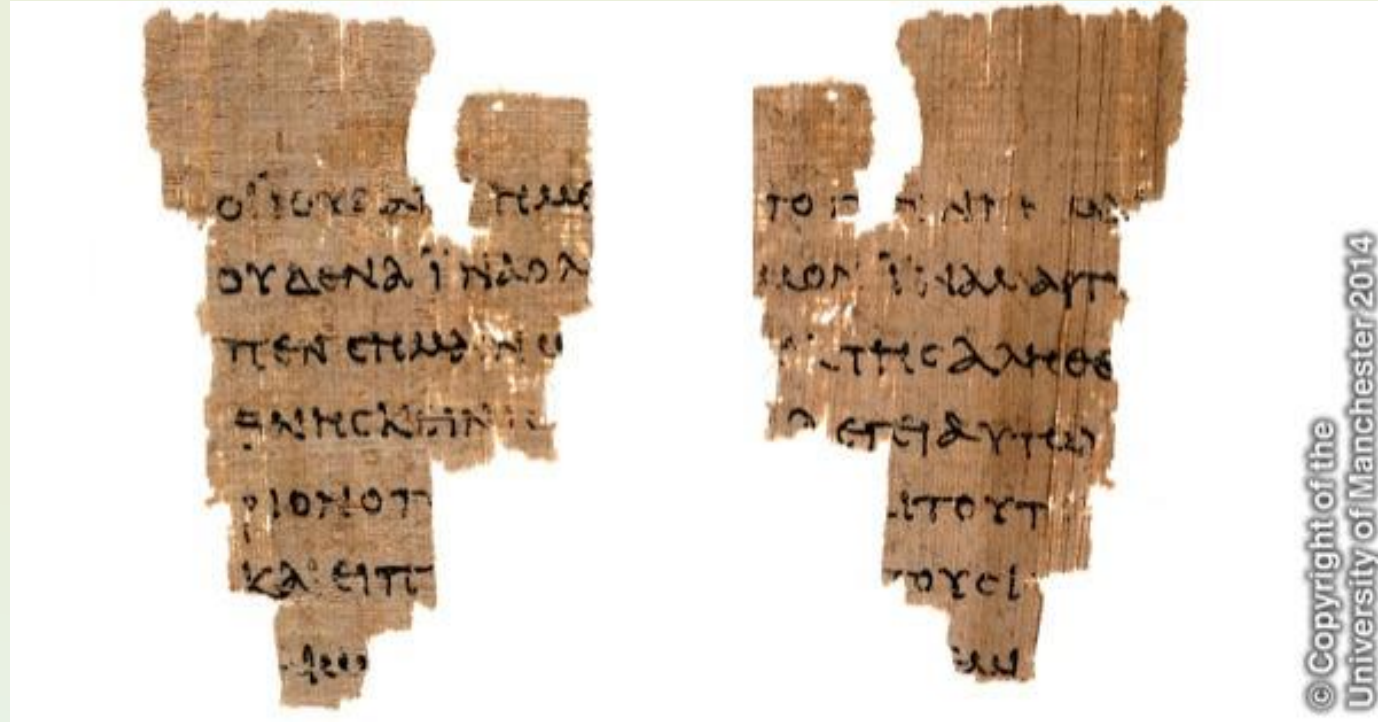 ΟΙ ΙΟΥΔΑΙ ΗΜΕ
ΟΥΔΕΝΑ ΪΝΑ Ο Λ
ΠΕΝ ϹΗΜΑΙΝΩ
ΘΝΗϹΚΕΙΝ ΙϹ
ΡΙΟΝ Ο Π
ΚΑΙ ΕΙΠ
ΑΙΩ
ΤΟ Γ ΝΝΗΜΑΙ
ϹΜΟΝ ΪΝΑ ΜΑΡΤΥ
ΕΚ ΤΗϹ ΑΛΗΘΕ
ΛΕΓΕΙ ΑΥΤΩ
ΑΙ ΤΟΥΤ
ΤΟΥϹ Ι
ΕΜΙ
© Copyright of the
University of Manchester 2014